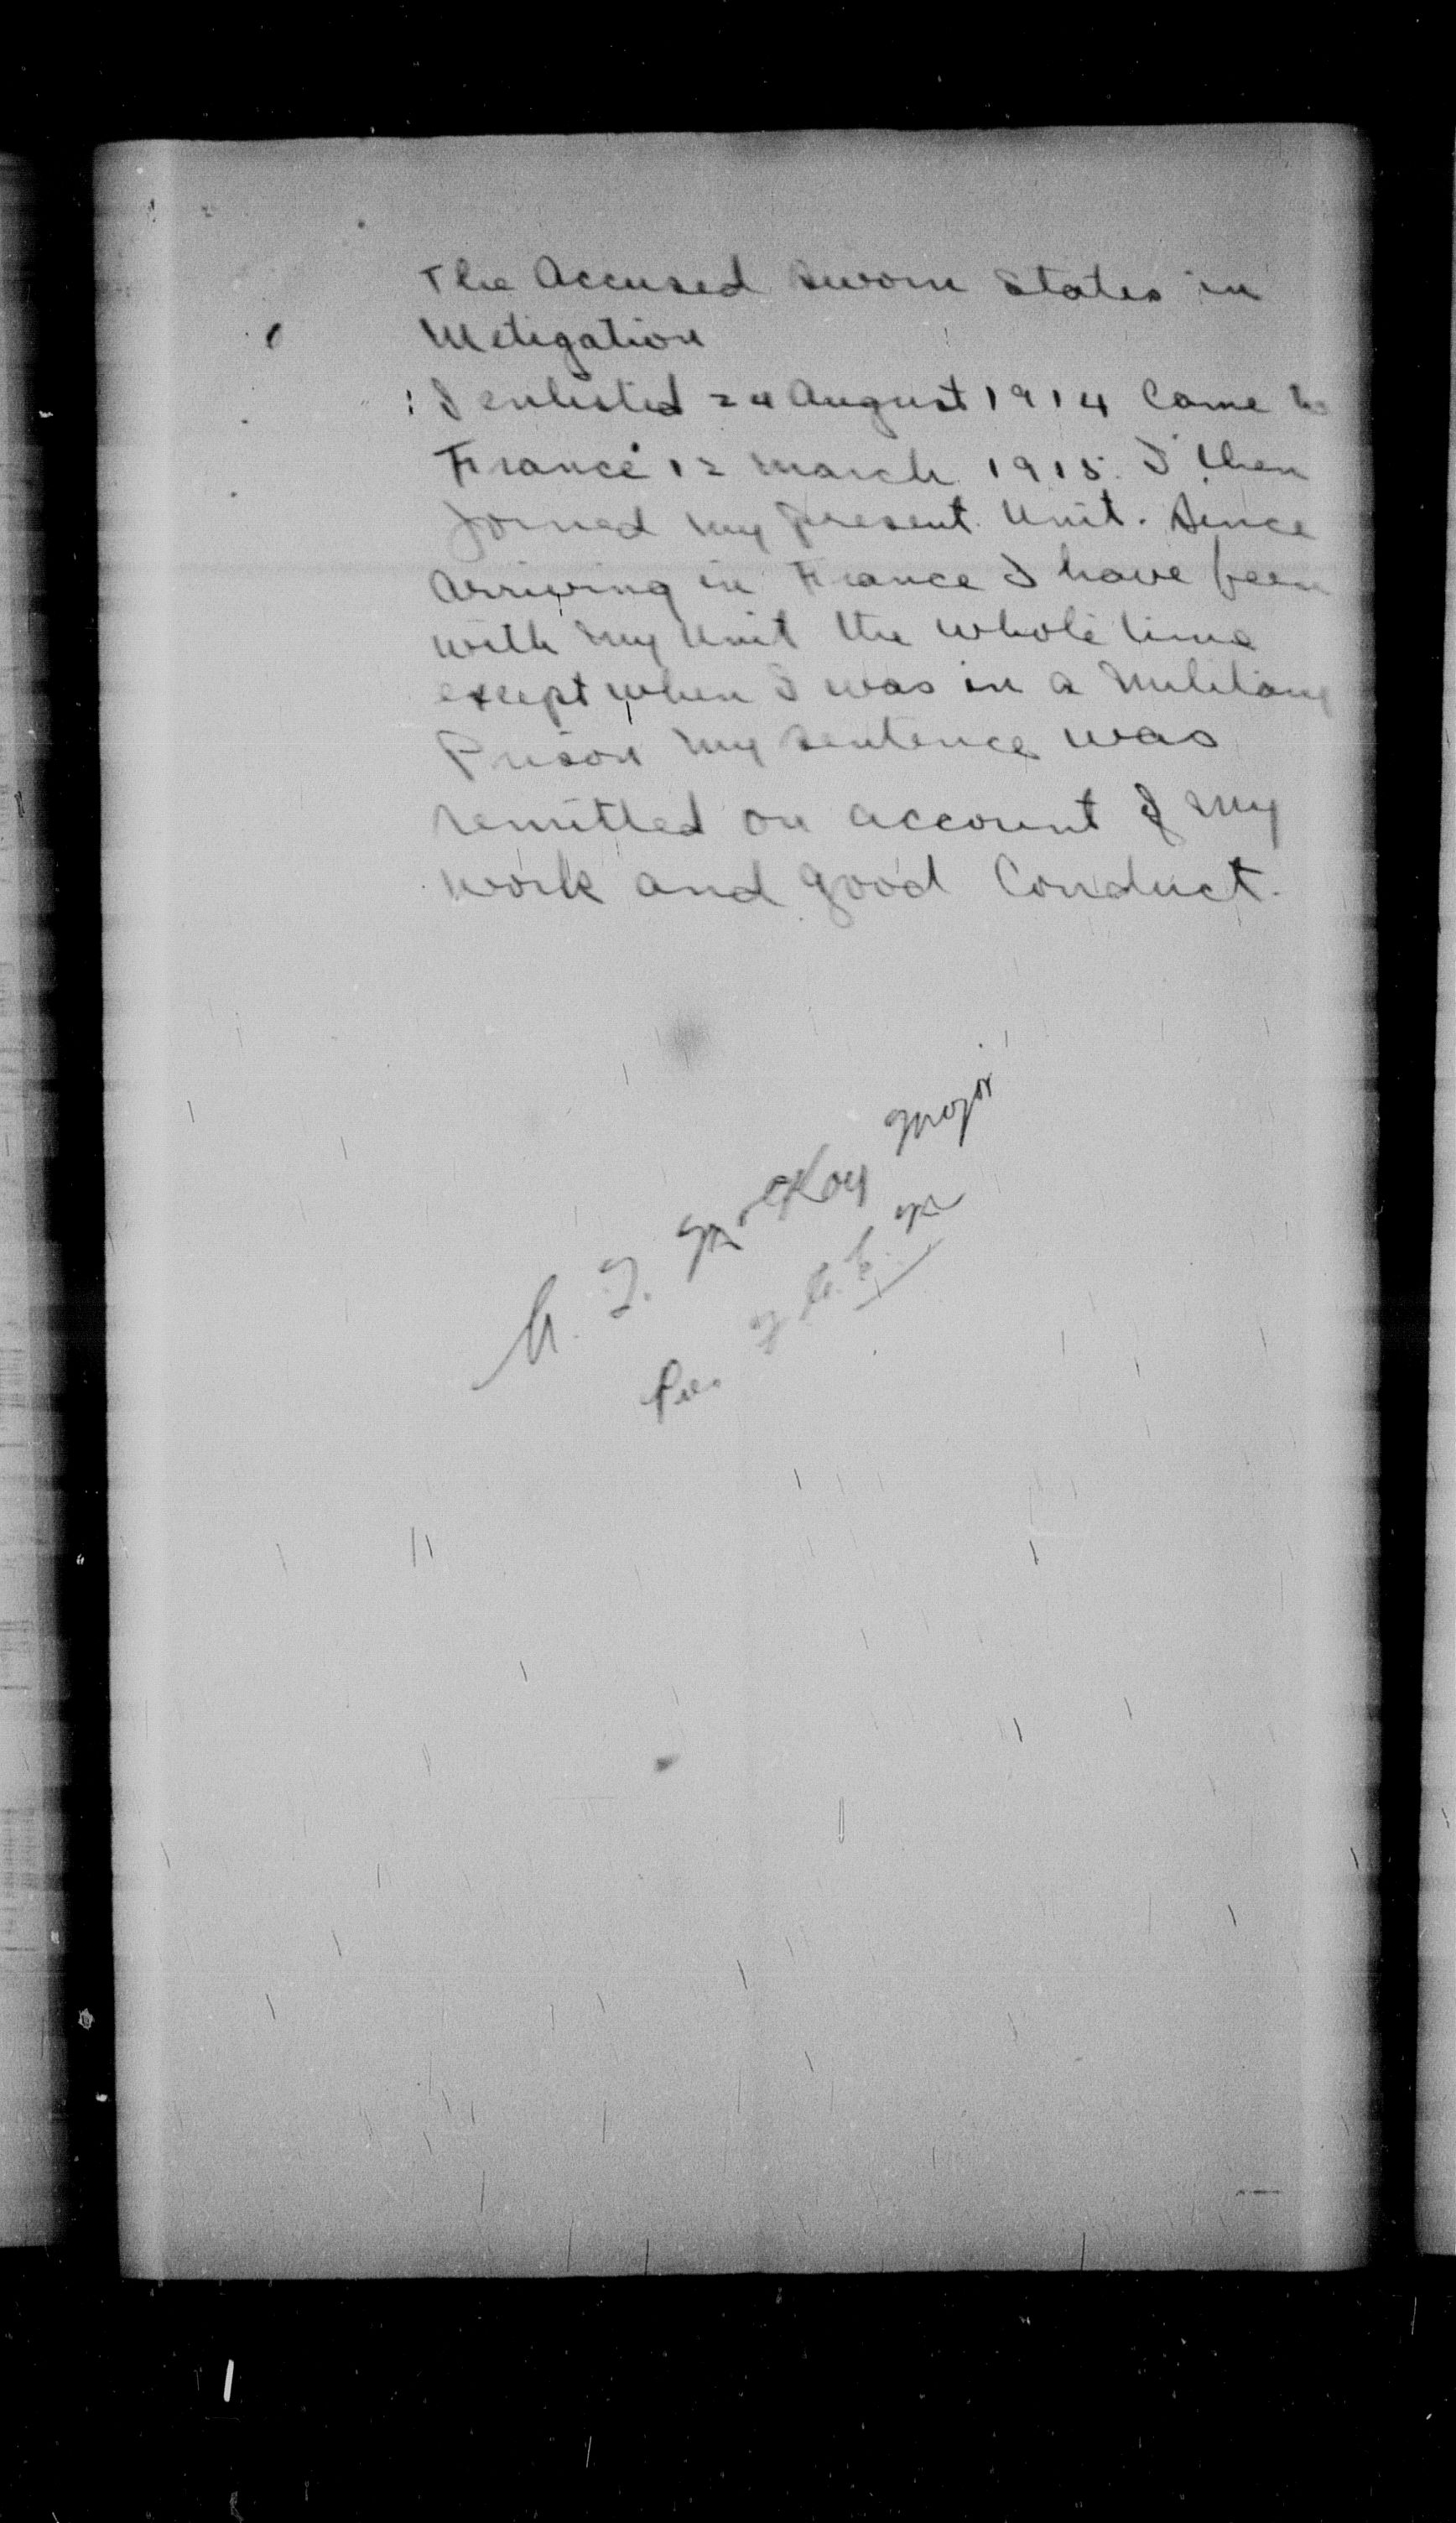 The Accused sworn states in
Metigation
I enlisted 24 August 1914 Came to
France 12 March 1915. I then
Joined my present Unit. Since
arriving in France I have been
with my Unit the whole time
except when I was in a Military
Prison my sentence was
remitted on account of my
work and good Conduct.
McKay Major
Pres